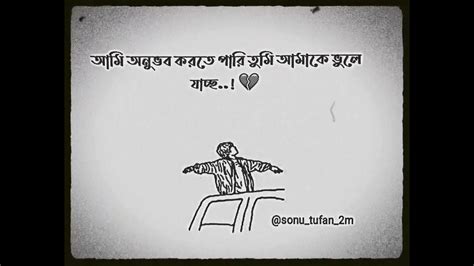 আমি অনুভব করতে পারি তুমি আমাকে ভুলে
যাচ্ছ..! 💔
@sonu_tufan_2m